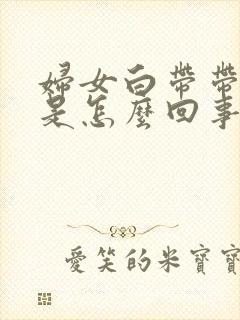 婦女白帶帶
是怎麼回事
愛笑的米寶寶